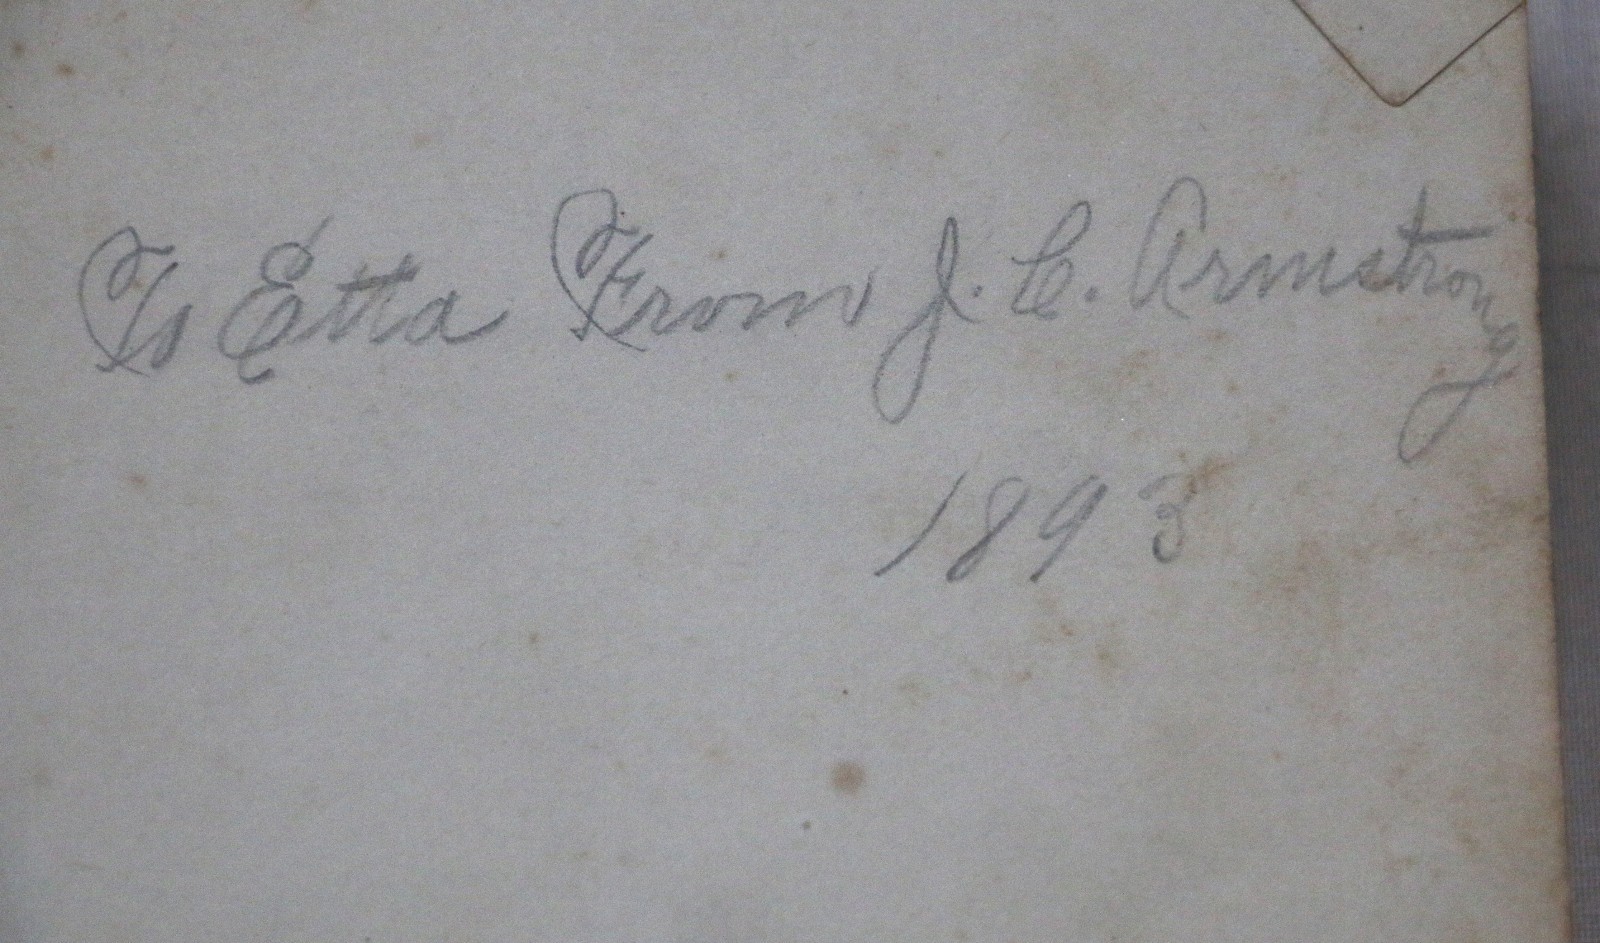 To Etta From J. C. Armstrong
1893